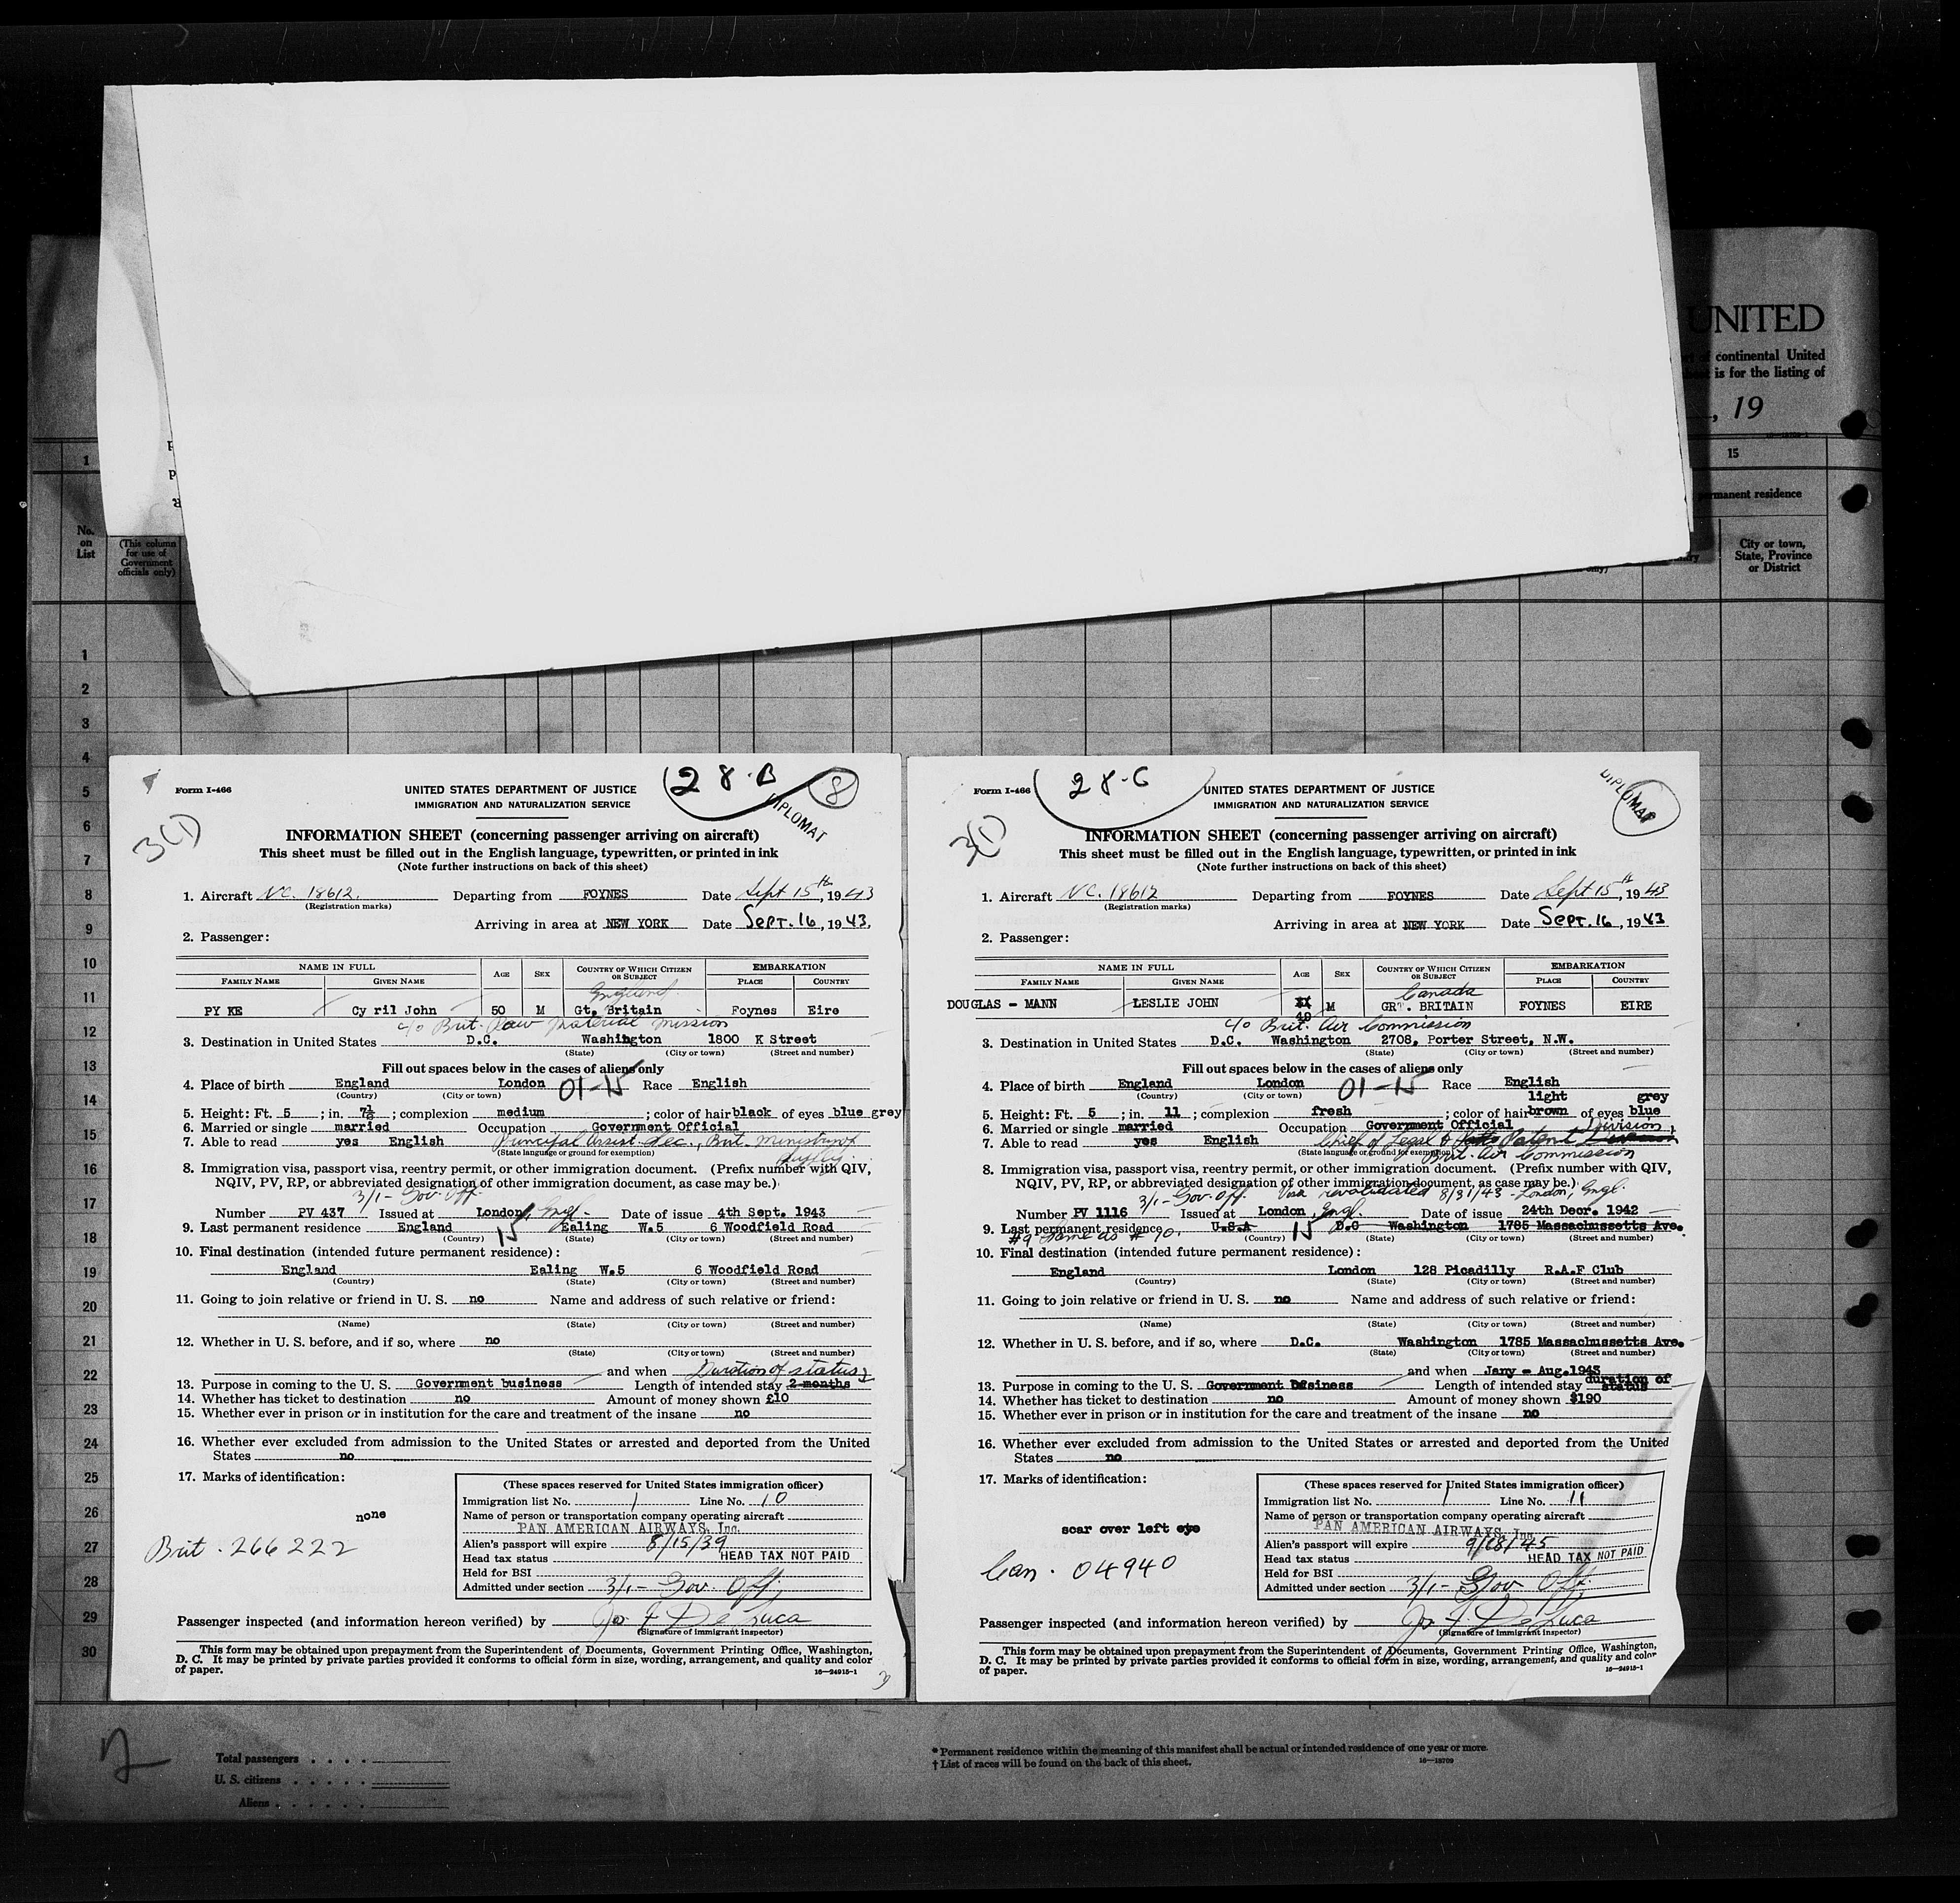 UNITED
of continental United
is for the listing of
, 19
1
15
permanent residence
No.
on
List
(This column
for use of
Government
officials only)
City or town,
State, Province
or District
1
2
3
4
5
6
7
8
9
10
11
12
13
14
15
16
17
18
19
20
21
22
23
24
25
26
27
28
29
30
Form I-466
28-B
8
DIPLOMAT
3(1)
UNITED STATES DEPARTMENT OF JUSTICE
IMMIGRATION AND NATURALIZATION SERVICE
INFORMATION SHEET (concerning passenger arriving on aircraft)
This sheet must be filled out in the English language, typewritten, or printed in ink
(Note further instructions on back of this sheet)
1. Aircraft NC. 18612. Departing from FOYNES Date Sept 15th, 1943
(Registration marks)
Arriving in area at NEW YORK Date SEPT. 16, 1943.
2. Passenger:
NAME IN FULL AGE SEX COUNTRY OF WHICH CITIZEN OR SUBJECT EMBARKATION
FAMILY NAME GIVEN NAME PLACE COUNTRY
England
PY KE Cy ril John 50 M Gt. Britain Foynes Eire
c/o Brit. Raw Material Mission
3. Destination in United States D.C. Washington 1800 K Street
(State) (City or town) (Street and number)
Fill out spaces below in the cases of aliens only
4. Place of birth England London 01-15 Race English
(Country) (City or town)
5. Height: Ft. 5 ; in. 7½ ; complexion medium ; color of hair black of eyes blue grey
6. Married or single married Occupation Government Official
7. Able to read yes English Principal Assist. Sec., Brit. Ministry of
(State language or ground for exemption)
Supply
8. Immigration visa, passport visa, reentry permit, or other immigration document. (Prefix number with QIV,
NQIV, PV, RP, or abbreviated designation of other immigration document, as case may be.)
3/1- Gov. Off.
Number PV 437 Issued at London, Engl. Date of issue 4th Sept. 1943
9. Last permanent residence England 15 Ealing W.5 6 Woodfield Road
(Country) (State) (City or town) (Street and number)
10. Final destination (intended future permanent residence):
England Ealing W.5 6 Woodfield Road
(Country) (State) (City or town) (Street and number)
11. Going to join relative or friend in U. S. no Name and address of such relative or friend:
(Name) (State) (City or town) (Street and number)
12. Whether in U. S. before, and if so, where no
(State) (City or town) (Street and number)
and when Duration of status
13. Purpose in coming to the U. S. Government business Length of intended stay 2 months
14. Whether has ticket to destination no Amount of money shown £10
15. Whether ever in prison or in institution for the care and treatment of the insane no
16. Whether ever excluded from admission to the United States or arrested and deported from the United
States no
17. Marks of identification:
none
Brit. 266222
(These spaces reserved for United States immigration officer)
Immigration list No. 1 Line No. 10
Name of person or transportation company operating aircraft
PAN AMERICAN AIRWAYS, Inc.
Alien's passport will expire 8/15/39
Head tax status HEAD TAX NOT PAID
Held for BSI
Admitted under section 3/1- Gov. Off.
Passenger inspected (and information hereon verified) by Jos. F. De Luca
(Signature of immigrant inspector)
This form may be obtained upon prepayment from the Superintendent of Documents, Government Printing Office, Washington,
D. C. It may be printed by private parties provided it conforms to official form in size, wording, arrangement, and quality and color
of paper. 16—24915-1
Form I-466
28-C
DIPLOMAT
3(1)
UNITED STATES DEPARTMENT OF JUSTICE
IMMIGRATION AND NATURALIZATION SERVICE
INFORMATION SHEET (concerning passenger arriving on aircraft)
This sheet must be filled out in the English language, typewritten, or printed in ink
(Note further instructions on back of this sheet)
1. Aircraft NC. 18612 Departing from FOYNES Date Sept 15th, 1943
(Registration marks)
Arriving in area at NEW YORK Date SEPT. 16, 1943
2. Passenger:
NAME IN FULL AGE SEX COUNTRY OF WHICH CITIZEN OR SUBJECT EMBARKATION
FAMILY NAME GIVEN NAME PLACE COUNTRY
Canada
DOUGLAS - MANN LESLIE JOHN 49 M GRT. BRITAIN FOYNES EIRE
c/o Brit. Air Commission
3. Destination in United States D.C. Washington 2708, Porter Street, N.W.
(State) (City or town) (Street and number)
Fill out spaces below in the cases of aliens only
4. Place of birth England London 01-15 Race English
(Country) (City or town)
light grey
5. Height: Ft. 5 ; in. 11 ; complexion fresh ; color of hair brown of eyes blue
6. Married or single married Occupation Government Official
7. Able to read yes English Chief of Legal & Patent Division,
(State language or ground for exemption)
Brit. Air Commission
8. Immigration visa, passport visa, reentry permit, or other immigration document. (Prefix number with QIV,
NQIV, PV, RP, or abbreviated designation of other immigration document, as case may be.)
3/1- Gov. Off. Visa revalidated 8/31/43 - London, Engl.
Number PV 1116 Issued at London, Engl. Date of issue 24th Decr. 1942
9. Last permanent residence U.S.A 15 D.C Washington 1785 Massachussetts Ave.
#9 Same as #10. (Country) (State) (City or town) (Street and number)
10. Final destination (intended future permanent residence):
England London 128 Picadilly R.A.F Club
(Country) (State) (City or town) (Street and number)
11. Going to join relative or friend in U. S. no Name and address of such relative or friend:
(Name) (State) (City or town) (Street and number)
12. Whether in U. S. before, and if so, where D.C. Washington 1785 Massachussetts Ave.
(State) (City or town) (Street and number)
and when Jany - Aug.1943
13. Purpose in coming to the U. S. Government Business Length of intended stay duration of status
14. Whether has ticket to destination no Amount of money shown $190
15. Whether ever in prison or in institution for the care and treatment of the insane no
16. Whether ever excluded from admission to the United States or arrested and deported from the United
States no
17. Marks of identification:
scar over left eye
Can. 04940
(These spaces reserved for United States immigration officer)
Immigration list No. 1 Line No. 11
Name of person or transportation company operating aircraft
PAN AMERICAN AIRWAYS, Inc.
Alien's passport will expire 9/28/45
Head tax status HEAD TAX NOT PAID
Held for BSI
Admitted under section 3/1- Gov. Off.
Passenger inspected (and information hereon verified) by Jos. F. De Luca
(Signature of immigrant inspector)
This form may be obtained upon prepayment from the Superintendent of Documents, Government Printing Office, Washington,
D. C. It may be printed by private parties provided it conforms to official form in size, wording, arrangement, and quality and color
of paper. 16—24915-1
Total passengers
U. S. citizens
Aliens
* Permanent residence within the meaning of this manifest shall be actual or intended residence of one year or more.
† List of races will be found on the back of this sheet. 16—18709